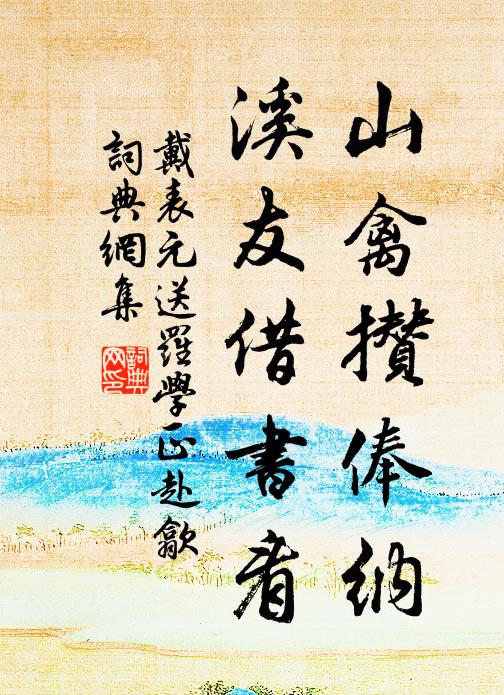 山禽攢俸納
溪友借書看
戴表元送羅學正赴歙
詞典網集
詞典网印